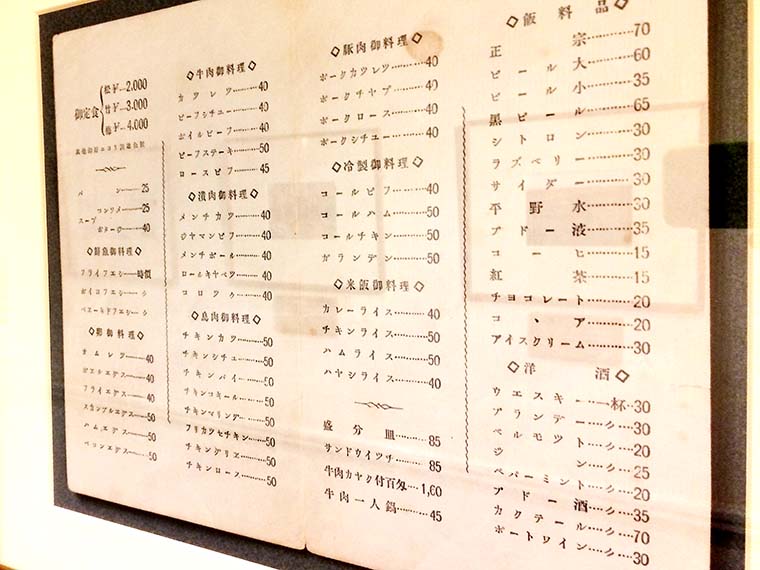 御定食
松ド…2.000
竹ド…3.000
梅ド…4.000
パン……25
スープ
コンソメ……25
ポタージ……40
◇鮮魚御料理◇
フライフエシ……時價
ボイコフエシ……〃
ベエーキドフエシ……〃
◇卵御料理◇
オムレツ……40
ボエルエグス……40
フライエグス……40
スカンブルエグス……50
ハムエグス……50
ベコンエグス……50
◇牛肉御料理◇
カツレツ……40
ビーフシチユー……40
ボイルビーフ……40
ビーフステーキ……50
ロースビフ……45
◇潰肉御料理◇
メンチカツ……40
ジヤマンビフ……40
メンチボール……40
ロールキヤベツ……40
コロツケ……40
◇鳥肉御料理◇
チキンカツ……50
チキンシチユ……50
チキンパイ……50
チキンコキール……50
チキンマリンデ……50
フリカツセチキン……50
チキンデリエ……50
チキンロース……50
◇豚肉御料理◇
ポークカツレツ……40
ポークチヤプ……40
ポークロース……40
ポークシチユー……40
◇冷製御料理◇
コールビフ……40
コールハム……50
コールチキン……50
ガランデン……50
◇米飯御料理◇
カレーライス……40
チキンライス……50
ハムライス……50
ハヤシライス……40
盛分皿……85
サンドウイツチ……85
牛肉カヤク付百匁…1,60
牛肉一人鍋……45
◇飲料品◇
正宗……70
ビール大……60
ビール小……35
黒ビール……65
シトロン……30
ラズベリー……30
サイダー……30
平野水……30
ブドー液……35
コーヒ……15
紅茶……15
チヨコレート……20
コヽア……20
アイスクリーム……30
◇洋酒◇
ウエスキー…一杯…30
ブランデー…〃…30
ベルモツト…〃…20
ジン…〃…25
ペパーミント…〃…20
ブドー酒…〃…35
カクテール…〃…70
ポートワイン…〃…30